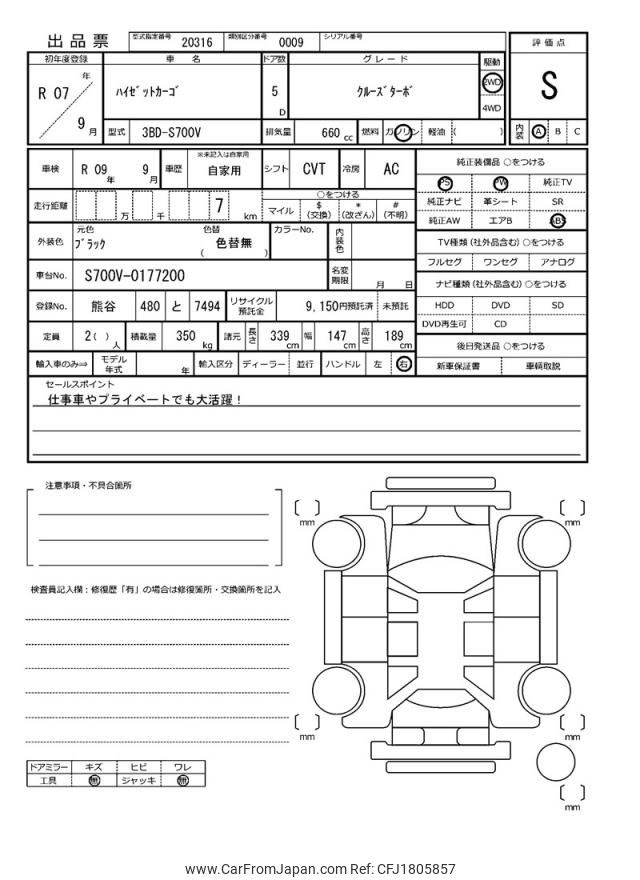 出品票 型式指定番号 20316 類別区分番号 0009 シリアル番号
評価点
S
内装 A B C
初年度登録 車名 ドア数 グレード 駆動
R 07 年 9 月 ﾊｲｾﾞｯﾄｶｰｺﾞ 5 D ｸﾙｰｽﾞﾀｰﾎﾞ 2WD
4WD
型式 3BD-S700V 排気量 660 cc 燃料 ガソリン 軽油 ( )
車検 R 09 年 9 月 車歴 ※未記入は自家用 自家用 シフト CVT 冷房 AC
走行距離 万 千 7 km ○をつける
マイル $(交換) *(改ざん) #(不明)
外装色 元色 ﾌﾞﾗｯｸ 色替 色替無 ( ) カラーNo. 内装色
車台No. S700V-0177200 名変期限 月 日
登録No. 熊谷 480 と 7494 リサイクル預託金 9,150円預託済 未預託
定員 2( ) 人 積載量 350 kg 諸元 長さ 339 cm 幅 147 cm 高さ 189 cm
輸入車のみ⇒ モデル年式 年 輸入区分 ディーラー 並行 ハンドル 左 右
純正装備品 ○をつける
PS PW 純正TV
純正ナビ 革シート SR
純正AW エアB ABS
TV種類(社外品含む) ○をつける
フルセグ ワンセグ アナログ
ナビ種類(社外品含む) ○をつける
HDD DVD SD
DVD再生可 CD
後日発送品 ○をつける
新車保証書 車輌取説
セールスポイント
仕事車やプライベートでも大活躍！
注意事項・不具合箇所
検査員記入欄：修復歴「有」の場合は修復箇所・交換箇所を記入
mm
mm
mm
mm
mm
ドアミラー キズ ヒビ ワレ
工具 無 ジャッキ 無
www.CarFromJapan.com Ref: CFJ1805857